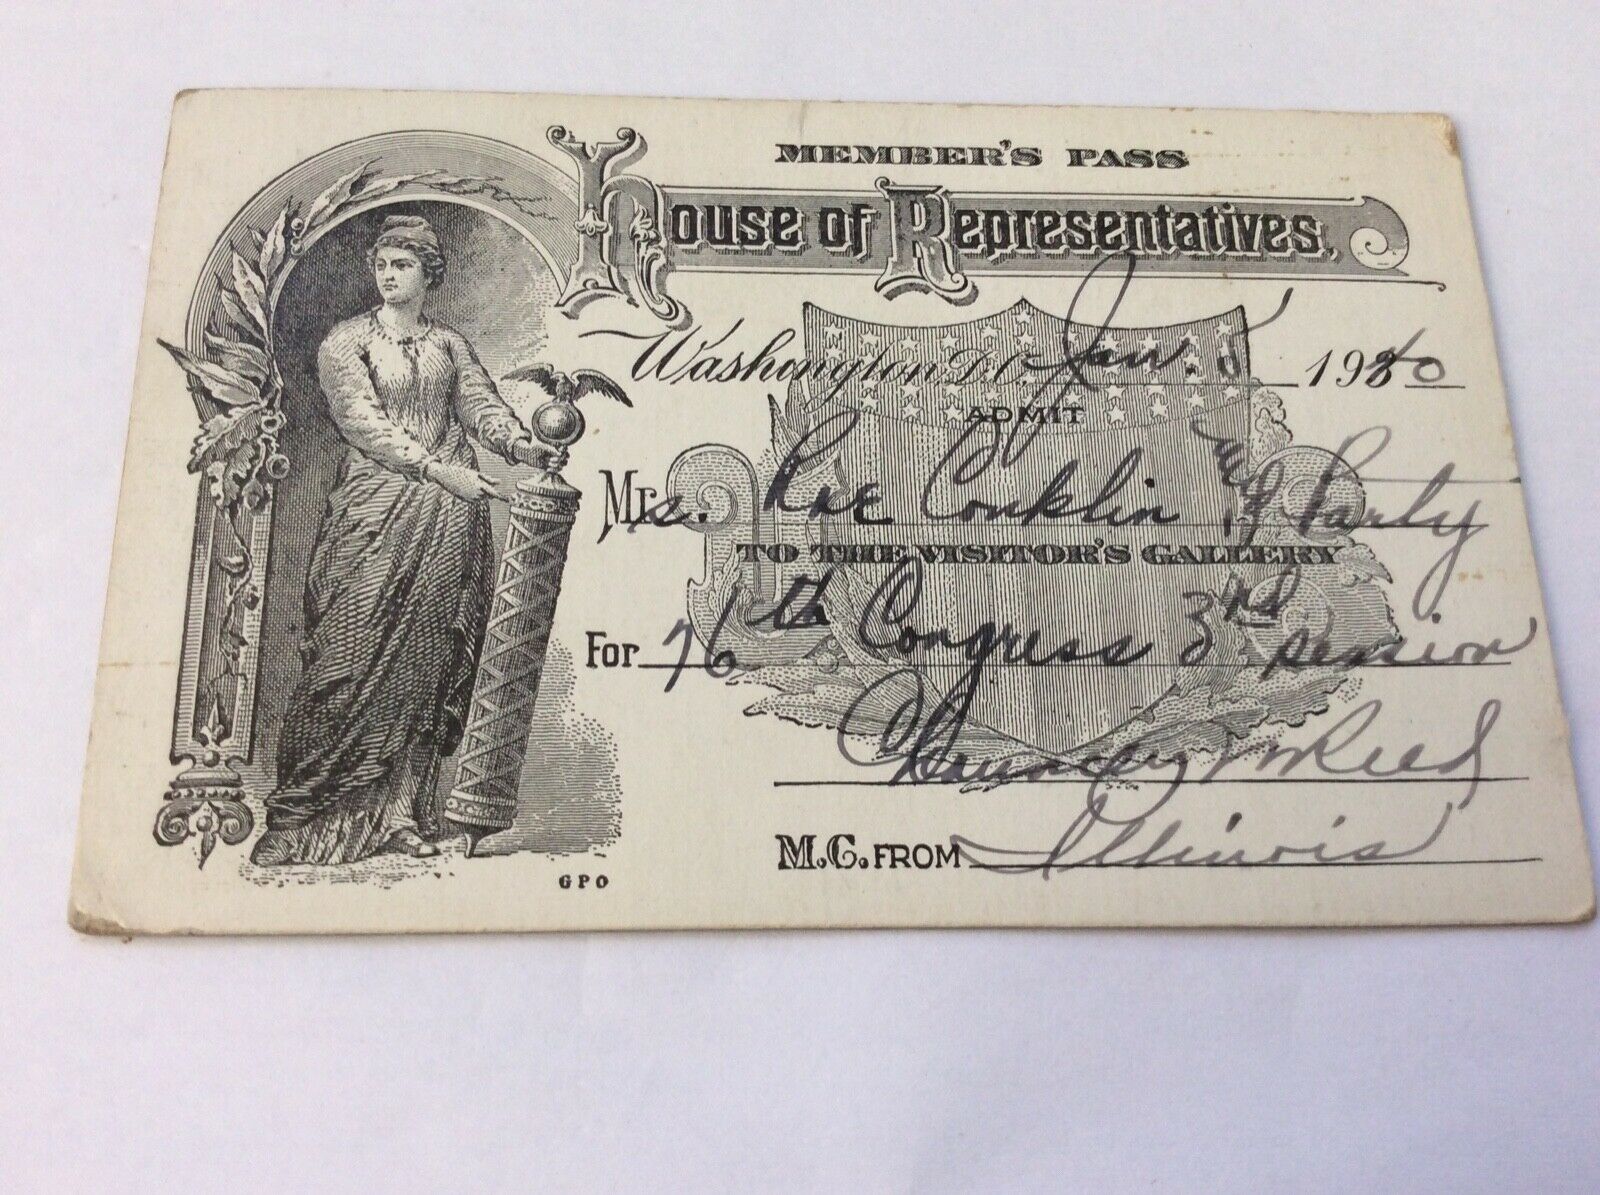 MEMBER'S PASS
House of Representatives,
Washington D.C. Jan. 1940
ADMIT
Mrs. Roe Conklin & Party
TO THE VISITOR'S GALLERY
For 76th Congress 3rd session
Chauncey W. Reed
M.C. FROM Illinois
GPO